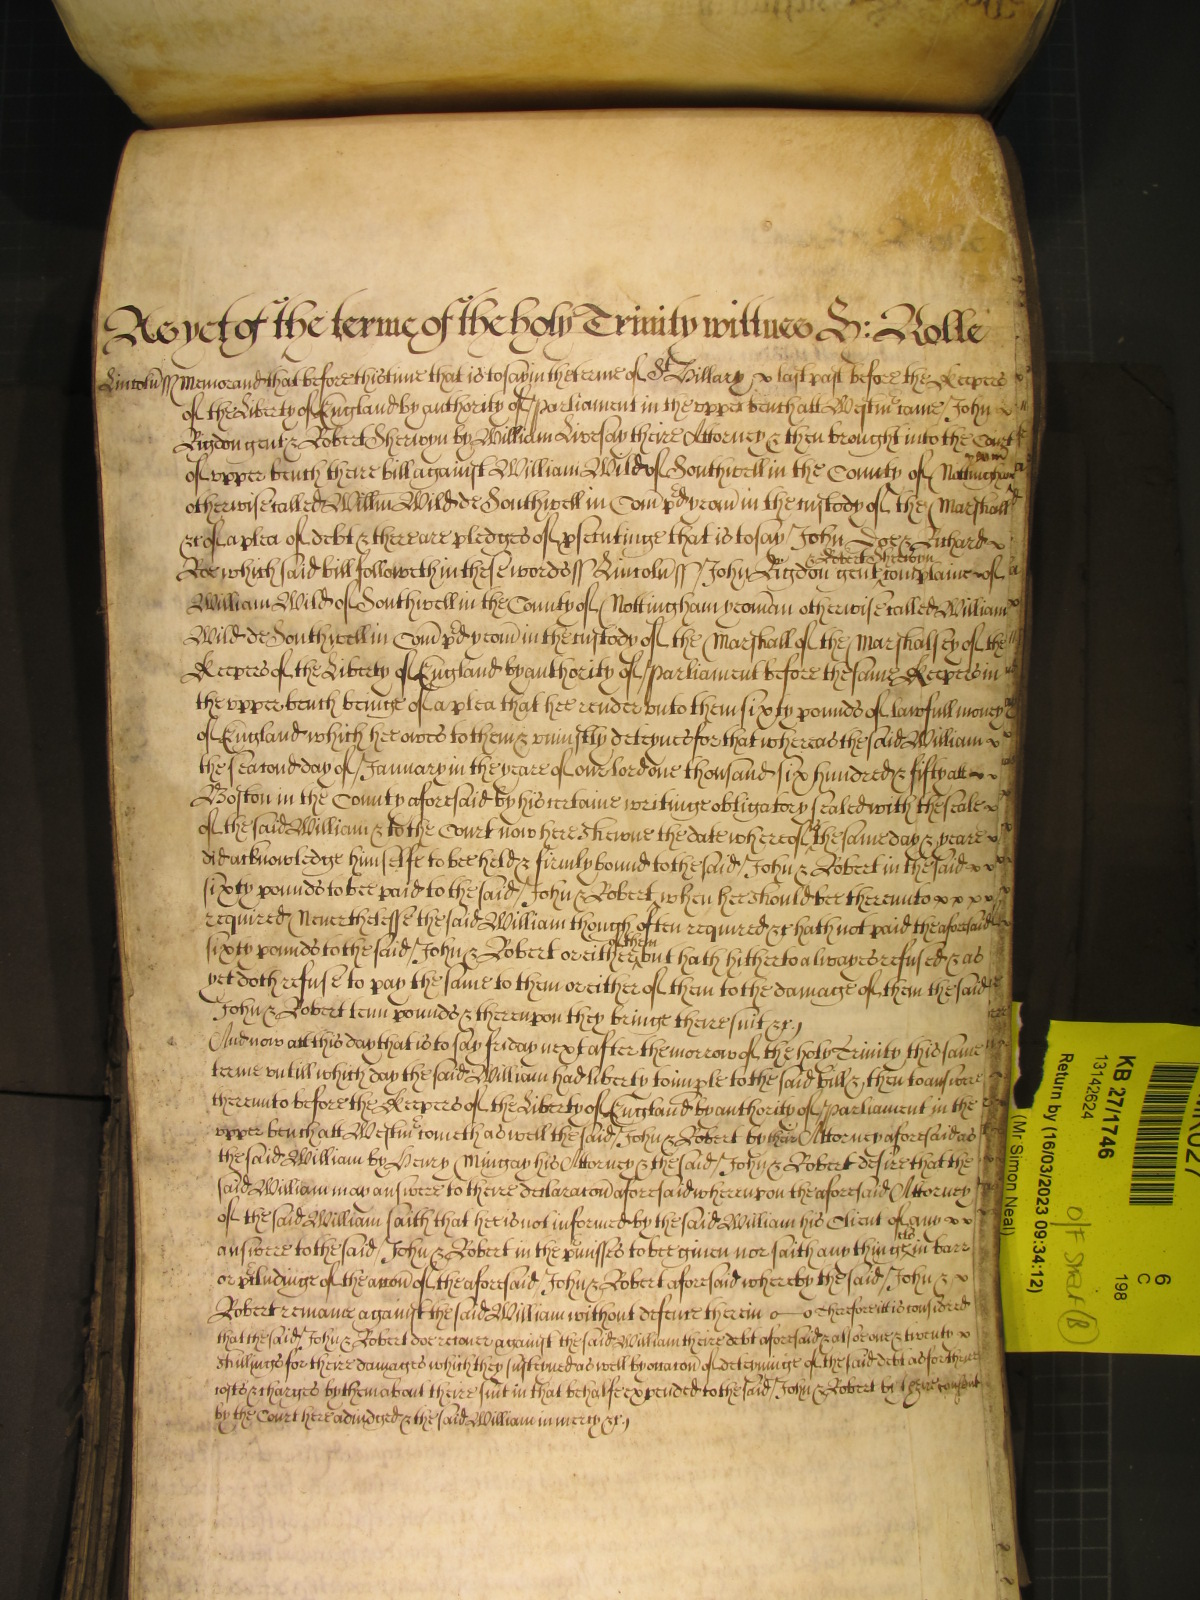 As yet of the terme of the holy Trinity wittnes H: Rolle
Lincoln ss Memorand that before this time that is to say in the terme of St Hillary x last past before the Keepers
of the Liberty of England by authority of Parliament in the upper bench att Westmr came John x
Rigdon gent & Robert Sherwyn by William Livesay theire Attorney & then brought into the Court
of upper bench theire bill against William Wild of Southwell in the County of Nottingham yeoman
otherwise called Willm Wild de Southwell in Com pred yeom in the custody of the Marshall
&c of a plea of debt & there are pledges of psecutinge that is to say John Doe & Richard x
Roe which said bill followeth in these words ss Lincoln ss John Rigdon gent & Robert Sherwyn complaine of
William Wild of Southwell in the County of Nottingham yeoman otherwise called William
Wild de Southwell in Com pred yeom in the custody of the Marshall of the Marshalsey of the
Keepers of the Liberty of England by authority of Parliament before the same Keepers in
the upper bench beinge of a plea that hee render unto them sixty pounds of lawfull money
of England which hee owes to them & uniustly deteynes for that whereas the said William x
the second day of January in the yeare of our lord one thousand six hundred & fifty att x x
Boston in the County aforesaid by his certaine writinge obligatory sealed with the seale x
of the said William & to the Court now here shewne the date whereof is the same day & yeare x
did acknowledge himselfe to bee held & firmly bound to the said John & Robert in the said x x
sixty pounds to bee paid to the said John & Robert when hee should bee thereunto x x x x
required Neverthelesse the said William though often required &c hath not paid the aforesaid
sixty pounds to the said John & Robert or either of them but hath hitherto alwayes refused & as
yet doth refuse to pay the same to them or either of them to the damage of them the said
John & Robert tenn pounds & thereupon they bringe theire suit &c.
And now att this day that is to say friday next after the morrow of the holy Trinity this same
terme untill which day the said William had liberty to imple to the said bill & then to answere
thereunto before the Keepers of the Liberty of England by authority of Parliament in the
upper bench att Westmr cometh as well the said John & Robert by their Attorney aforesaid as
the said William by Henry Mingay his Attorney & the said John & Robert desire that the
said William may answere to theire declaracon aforesaid whereupon the aforesaid Attorney
of the said William saith that hee is not informed by the said William his Client of any x x
answere to the said John & Robert in the pmisses to bee given nor saith any thinge in barr
or pcludinge of the accon of the aforesaid John & Robert aforesaid whereby the said John & x
Robert remaine against the said William without defence therein Therefore itt is considred
that the said John & Robert doe recover against the said William theire debt aforesaid & alsoe one & twenty x
shillings for theire damages which they susteyned as well by occacon of deteyninge of the said debt as for theire
costs & charges by them about theire suit in that behalfe expended to the said John & Robert by theire consent
by the Court here adiudged & the said William in mercy &c.
KB 27/1746
13142624
Return by (16/03/2023 09:34:12)
(Mr Simon Neal)
6
C
198